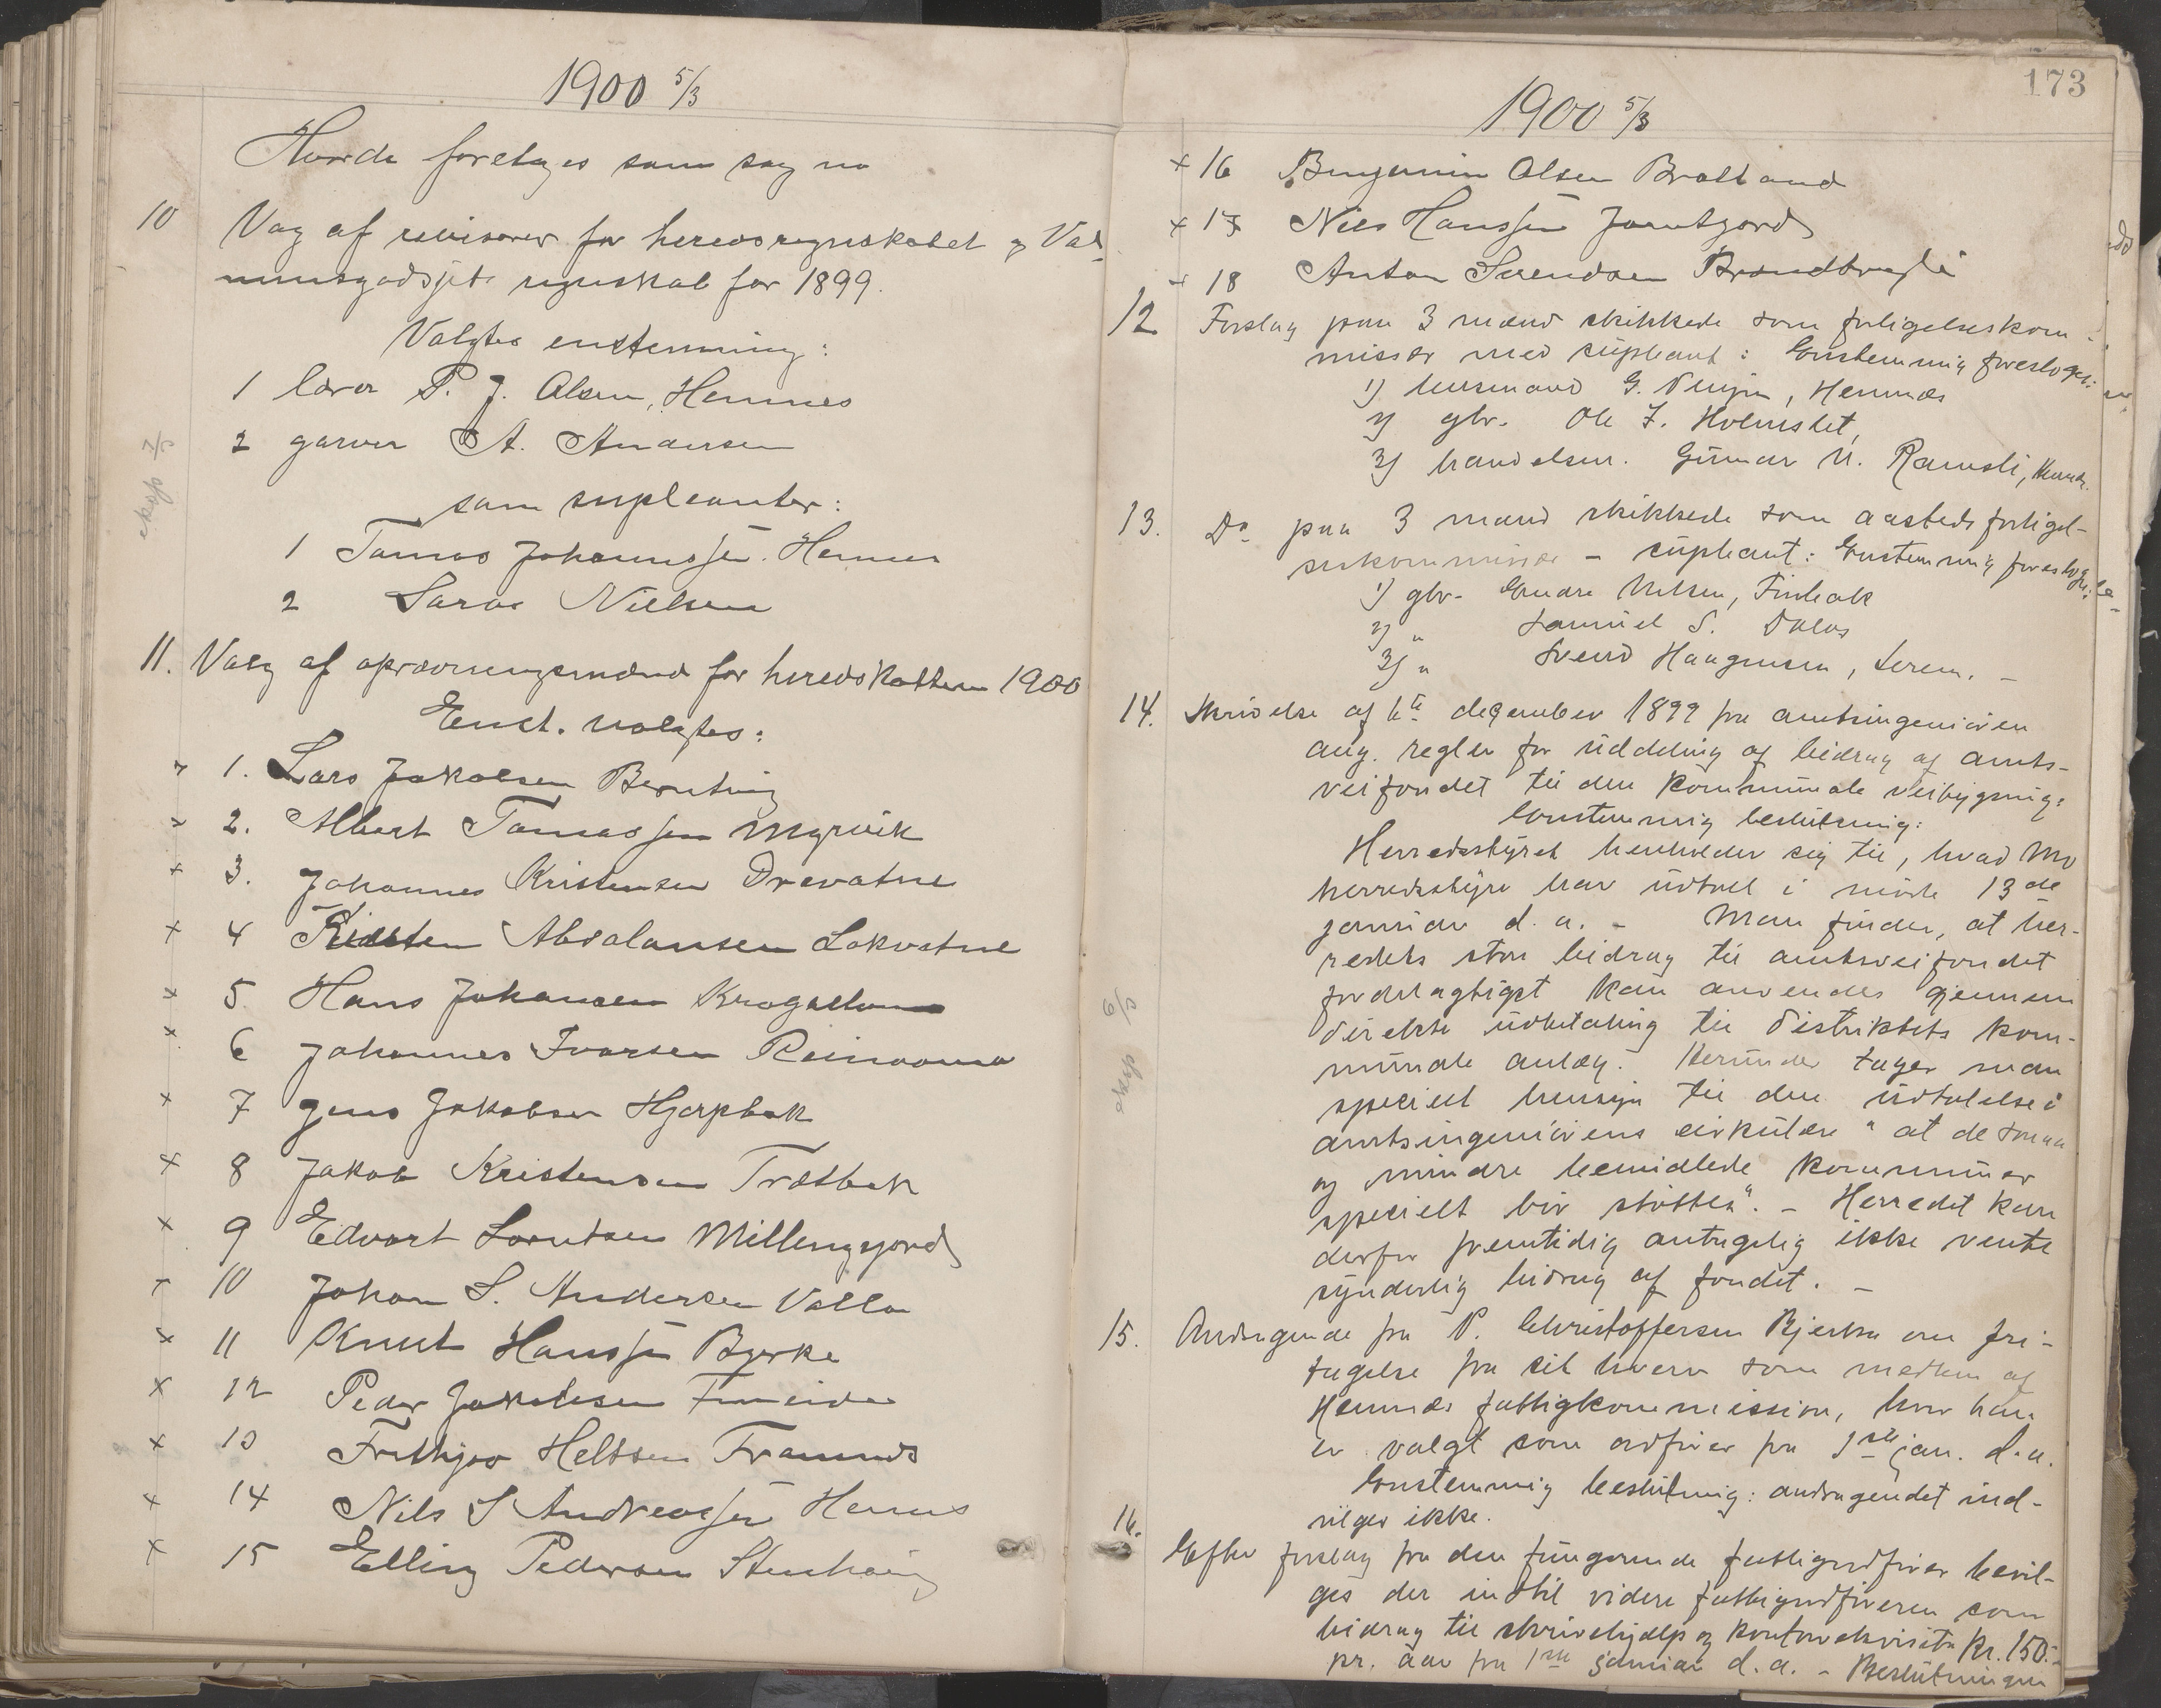 1900 5/3
Hvorda foretoges som sag no
10 Valg af revisorer for heredsregnskabet og Val
munsgodsjets regnskab for 1899.
Valgtes enstemmig:
1 lærer P. J. Olsen, Hemnes
2 garver A. Andersen
som supleanter:
1 Tomas Johannssen. Hemnes
2 Laros Nielsen
ekspd 7/5
11. Valg af opkrævningsmænd for heredskatten 1900
Enst. valgtes:
x 1. Lars Jakobsen Berntvig
x 2. Albert Tomassen Myrvik
x 3. Johannes Kristensen Drevatne
x 4 Kirsten Absalonsen Lokvatne
x 5 Hans Johansen
x 6 Johannes Ivarsen
x 7 Jens Jakobsen Hjerpbak
x 8 Jakob Kristensen Trætbak
x 9 Edvart Lorntsen Millengsjord
x 10 Johan L. Andersen Valla
x 11 Knut Hanssen Bjerke
x 12 Peder Jakobsen Finneide
x 13 Frithjov Heltsen
x 14 Nils S Andreassen Hemnes
x 15 Elling Pedersen Stenhaug
173
1900 5/3
x 16 Benjamin Olsen Bratland
x 17 Nils Hanssen Jamtjord
x 18 Anton Svendsen
12 Forslag paa 3 mænd skikkede som forligelseskom-
missær med supleant: Enstemmig foresloges:
1) lensmand G. , Hemnæs
2) gbr. Ole J. Holmslet,
3) handelsm. Gunnar N. Ramsli, Hemnæs.
13. Do paa 3 mænd skikkede som aastedsforligel-
seskommissær - supleant: Enstemmig foresloges:
1) gbr. Nilsen, Finbak
2) " Samuel S. Dalos
3) " Svend Haagensen, Lerem. -
14. Skrivelse af 6te december 1899 fra amtsingeniøren
ang. regler for uddeling af bidrag af amts-
veifondet til den kommunale veibygning:
Enstemmig beslutning:
Herredsstyret henholder sig til, hvad Mo
herredsstyre har udtalt i møde 13de
januar d. a. - Man finder, at her-
redets store bidrag til amtsveifondet
fordelagtigst kan anvendes gjennem
direkte udbetaling til distriktets kom-
munale anlæg. Herunder tager man
specielt hensyn til den udtalelse i
amtsingeniørens cirkulære "at de smaa
og mindre bemidlede kommuner
specielt bør støttes". - Herredet kan
derfor fremtidig antagelig ikke vente
synderlig bidrag af fondet. -
ekspd 9/5
15. Andragende fra P. Christoffersen Bjerka om fri-
tagelse fra sit hverv som medlem af
Hemnæs fattigkommission, hvor han
er valgt som ordfører fra 1ste jan. d. a.
Enstemmig beslutning: andragendet ind-
vilges ikke.
16. Efter forslag fra den fungerende fattigordfører bevil-
ges der indtil videre fattigordføreren som
bidrag til skrivehjælp og kontorrekvisita kr. 150.-
pr. aar fra 1ste januar d. a. - Beslutningen